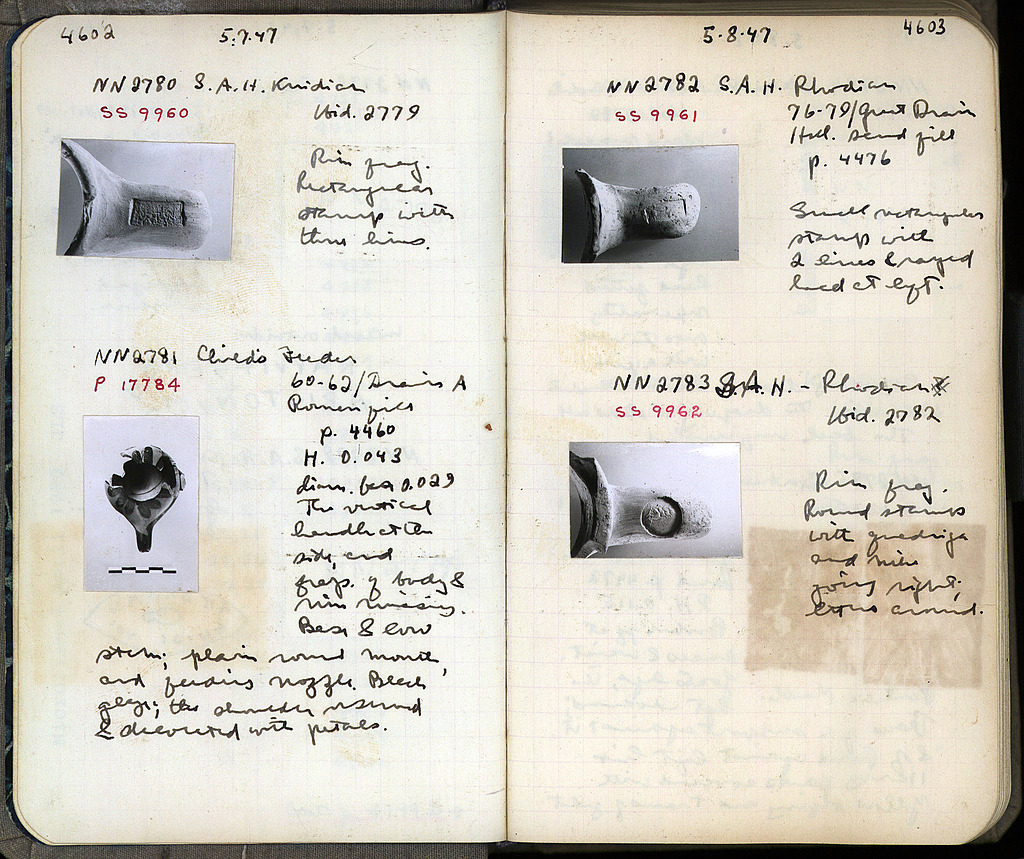 4602
5.7.47
NN2780 S.A.H. Knidian
SS 9960
Ibid. 2779
Rim frag.
Rectangular
stamp with
three lines.
NN2781 Child's Feeder
P 17784
60-62/Drain A
Roman fill
p. 4460
H. 0.043
diam. base 0.029
The vertical
handle at the
side, and
frags. of body &
rim missing.
Base & low
stem; plain round mouth,
and feeding nozzle. Black
glaze; the shoulder reserved
& decorated with petals.
5.8.47
4603
NN2782 S.A.H. Rhodian
SS 9961
76-79/Great Drain
Hell. sand fill
p. 4476
Small rectangular
stamp with
2 lines & rayed
head at left.
NN2783 S.A.H. - Rhodian
SS 9962
Ibid. 2782
Rim frag.
Round stamp
with quadriga
and
going right;
around.